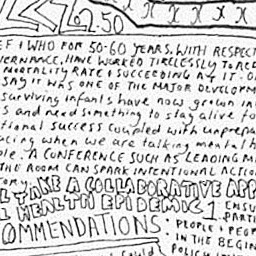 2:50
EF & WHO FOR 50-60 YEARS, WITH RESPECT
VERNANCE, HAVE WORKED TIRELESSLY TO RED
MORTALITY RATE & SUCCEEDING AT IT. O
SAY IT WAS ONE OF THE MAJOR DEVELOPM
surviving infants have now grown in
s and need something to stay alive fo
tional success coupled with unprepa
acing when we are talking mental h
ple. A CONFERENCE SUCH AS LEADING MI
THE ROOM CAN SPARK INTENTIONAL ACTIO
TORY
L TAKE A COLLABORATIVE APP
L HEALTH EPIDEMIC
OMMENDATIONS:
1. ENSU
PARTI
PEOPLE & PEOP
IN THE BEGIN
POLICY
could